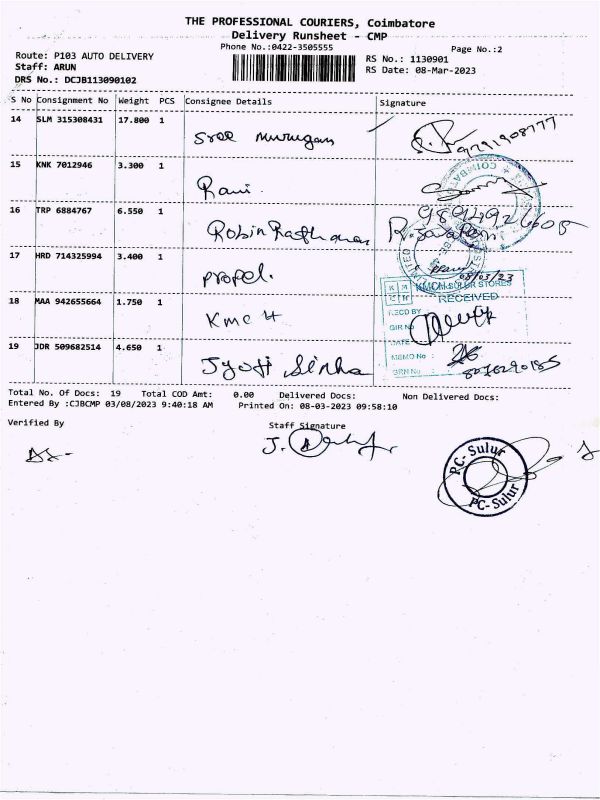 THE PROFESSIONAL COURIERS, Coimbatore
Delivery Runsheet - CMP
Phone No.:0422-3505555
Page No.:2
Route: P103 AUTO DELIVERY
RS No.: 1130901
Staff: ARUN
RS Date: 08-Mar-2023
DRS No.: DCJB113090102
S No Consignment No Weight PCS Consignee Details Signature
14 SLM 315308431 17.800 1 Sree murugan 9791908777
15 KNK 7012946 3.300 1 Ravi.
16 TRP 6884767 6.550 1
17 HRD 714325994 3.400 1 propel. 08/03/23
KMCH SULUR STORES
RECEIVED
18 MAA 942655664 1.750 1 KMC H
RECD BY
GIR No
DATE
MEMO No :
GRN No :
19 JDR 509682514 4.650 1 Jyoti Sinha
Total No. Of Docs: 19 Total COD Amt: 0.00 Delivered Docs: Non Delivered Docs:
Entered By :CJBCMP 03/08/2023 9:40:18 AM Printed On: 08-03-2023 09:58:10
Verified By
Staff Signature
PC- Sulur
PC- Sulur